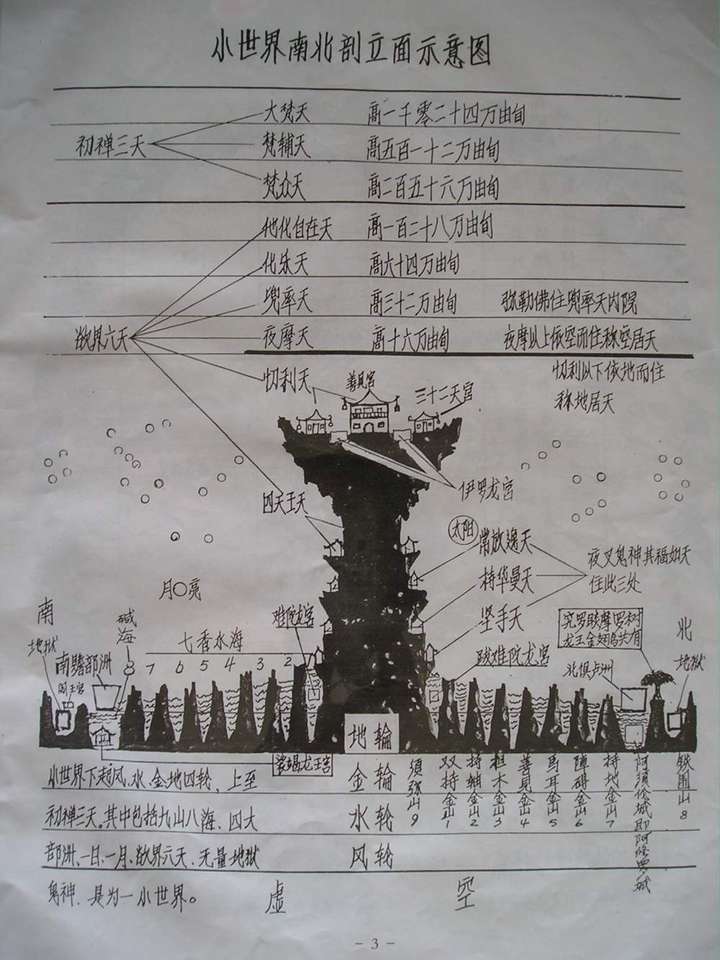 小世界南北剖立面示意图
大梵天 高一千零二十四万由旬
初禅三天 梵辅天 高五百一十二万由旬
梵众天 高二百五十六万由旬
他化自在天 高一百二十八万由旬
化乐天 高六十四万由旬
兜率天 高三十二万由旬 弥勒佛住兜率天内院
欲界六天 夜摩天 高十六万由旬 夜摩以上依空而住称空居天
忉利天 善见宫 三十二天宫 忉利以下依地而住
称地居天
伊罗龙宫
四天王天
太阳 常放逸天
夜叉鬼神其福如天
住此三处
持华曼天
月亮
坚手天
南
地狱
碱海
七香水海
难陀龙宫
跋难陀龙宫
龙王金翅鸟共有
北
地狱
南贍部洲
阎王宫
8 7 6 5 4 3 2
北俱卢洲
地轮
娑竭龙王宫
小世界下起风、水、金、地四轮，上至
金轮
初禅三天。其中包括九山八海、四大
水轮
部洲、一日、一月、欲界六天、无量地狱
风轮
鬼神，是为一小世界。
虚空
須弥山9
双持金山1
持轴金山2
担木金山3
善見金山4
馬耳金山5
障碍金山6
持地金山7
阿須倫城即阿修罗城
铁围山8
- 3 -